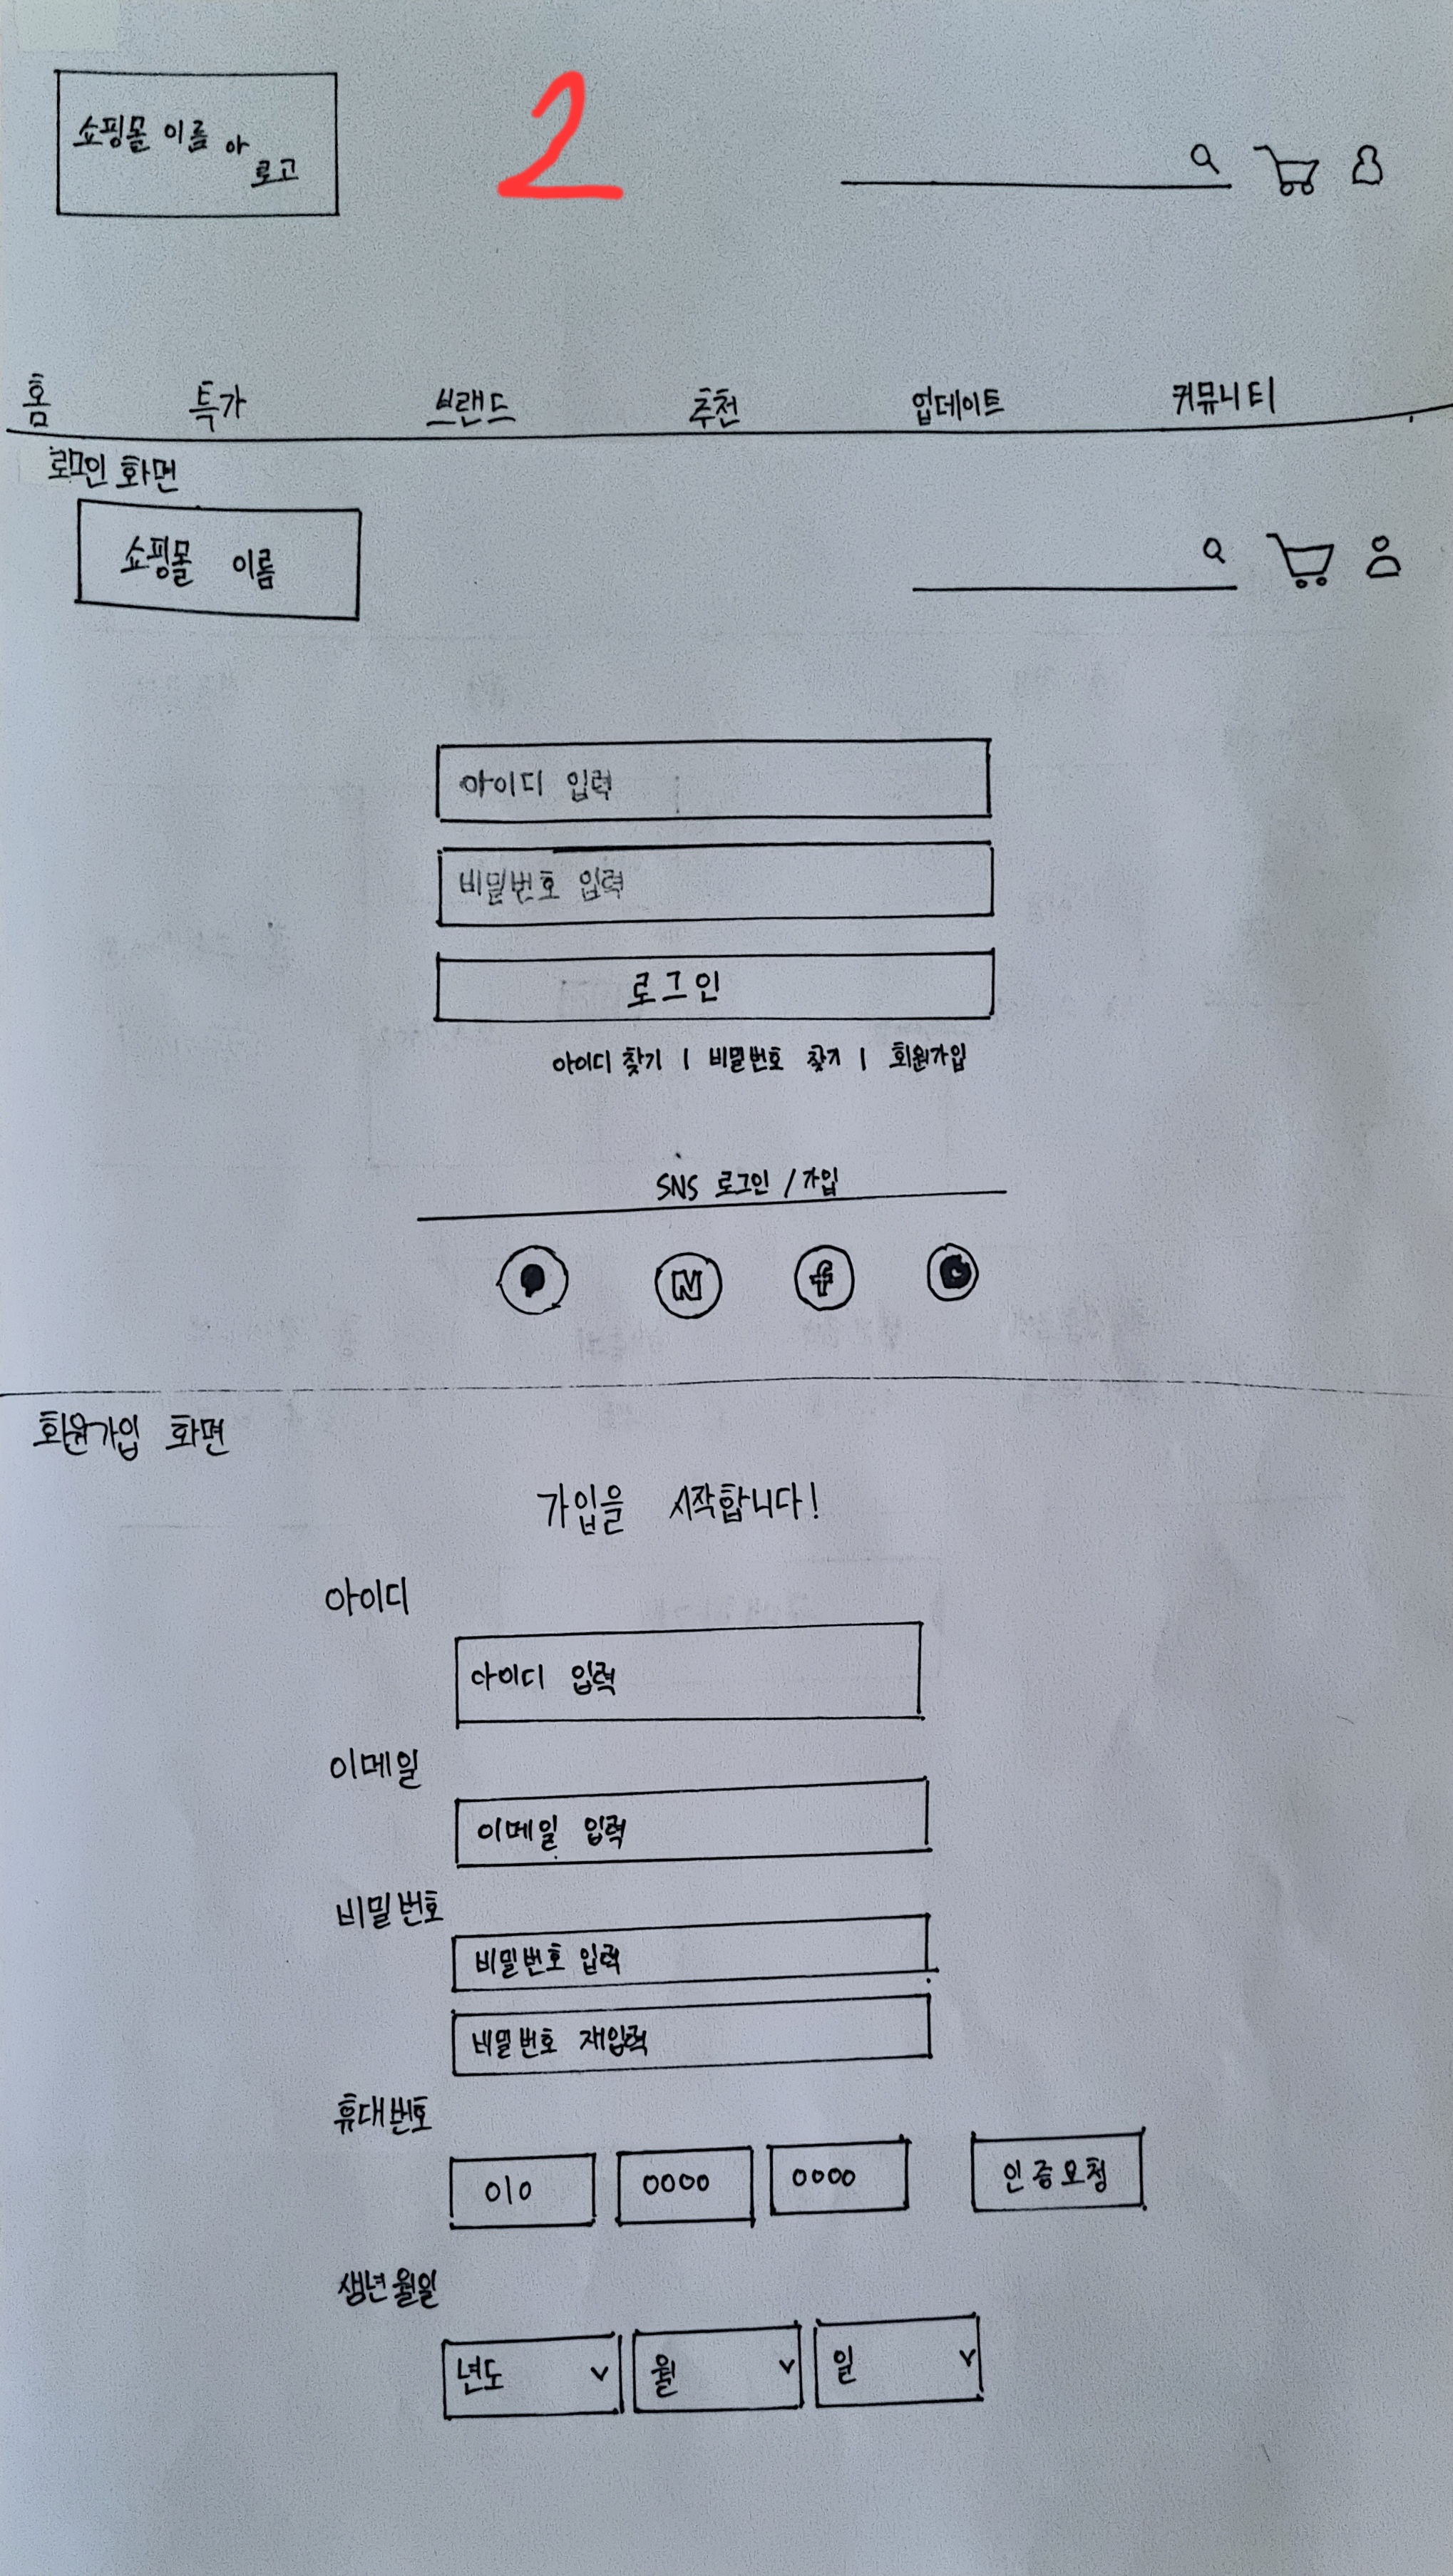 쇼핑몰 이름 아
로고
2
홈 특가 브랜드 추천 업데이트 커뮤니티
로그인 화면
쇼핑몰 이름
아이디 입력
비밀번호 입력
로그인
아이디 찾기 | 비밀번호 찾기 | 회원가입
SNS 로그인 / 가입
N f
회원가입 화면
가입을 시작합니다!
아이디
아이디 입력
이메일
이메일 입력
비밀번호
비밀번호 입력
비밀번호 재입력
휴대번호
010 0000 0000 인증요청
생년월일
년도 v 월 v 일 v